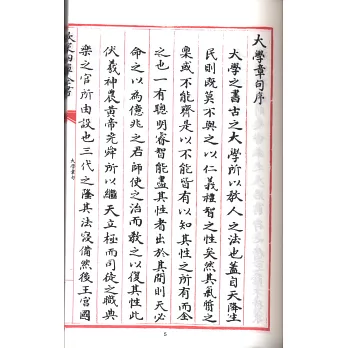 大學章句序
大學之書古之大學所以教人之法也蓋自天降生
民則既莫不與之以仁義禮智之性矣然其氣質之
稟或不能齊是以不能皆有以知其性之所有而全
之也一有聰明睿智能盡其性者出於其間則天必
命之以為億兆之君師使之治而教之以復其性此
伏羲神農黃帝堯舜所以繼天立極而司徒之職典
樂之官所由設也三代之隆其法寖備然後王宮國
大學章句
5